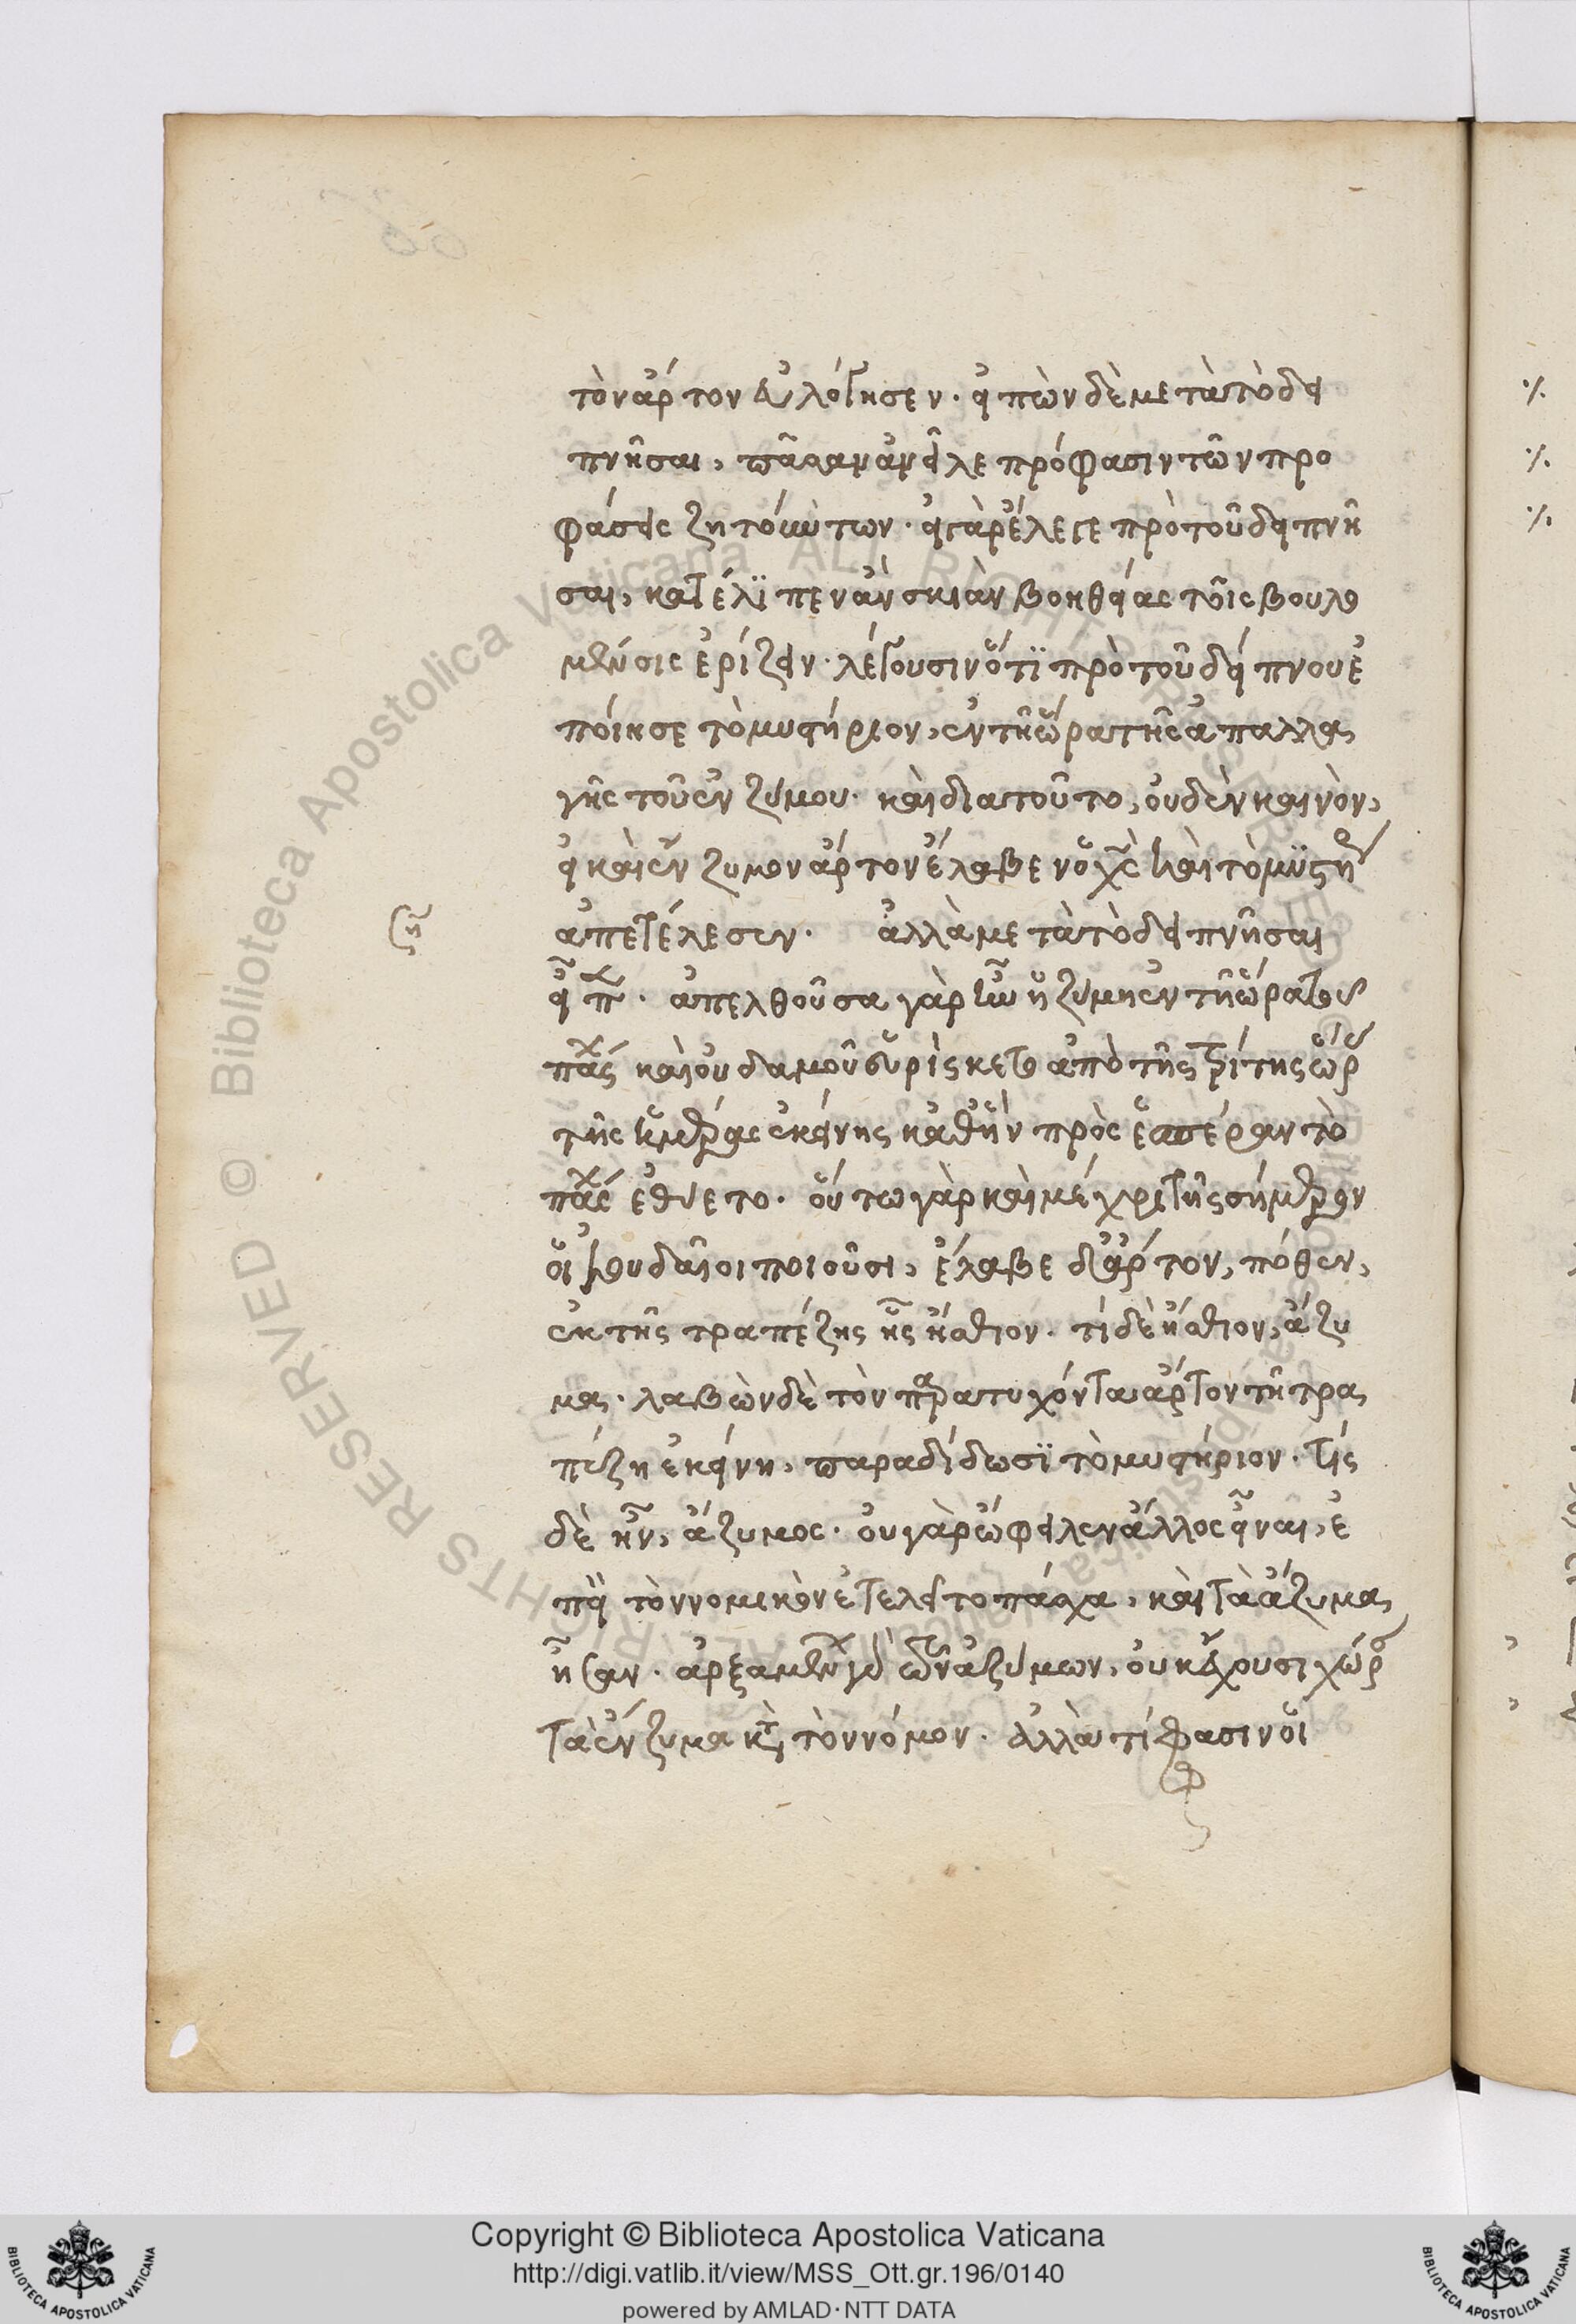 τὸν ἄρτον εὐλόγησεν· εἰπὼν δὲ μετὰ τὸ δει
πνῆσαι, πᾶσαν ἀνεῖλε πρόφασιν τῶν προ
φάσεις ζητούντων· εἰ γὰρ ἔλεγε πρὸ τοῦ δειπνῆ
σαι, κατέλϊπεν ἂν σκιὰν βοηθείας τοῖς βουλο
μένοις ἐρίζειν· λέγουσιν ὅτϊ πρὸ τοῦ δείπνου ἐ
ποίησε τὸ μυστήριον, ἐν τῆ ὥρα τῆς ἀπαλλα
γῆς τοῦ ἐνζύμου· καὶ διατοῦτο, οὐδὲν καινὸν,
εἰ καὶ ἔνζυμον ἄρτον ἔλαβεν ὁ χς καὶ τὸ μϋστή
ἀπετέλεσεν· ἀλλὰ μετὰ τὸ δειπνῆσαι
ἀπελθοῦσα γὰρ ἦν ἡ ζύμη ἐν τῆ ὥρα τοῦ
πάσχ καὶ οὐδαμοῦ εὑρίσκετο ἀπὸ τῆς τρίτης ὥρ
τῆς ἡμέρας ἐκείνης καθ' ἣν πρὸς ἑσπέραν τὸ
πάσχ ἐθύετο· οὕτω γὰρ καὶ μέχρι τῆς σήμερον
οἱ ἰουδαῖοι ποιοῦσι, ἔλαβε δ' ἄρτον, πόθεν,
ἐκ τῆς τραπέζης ἧς ἤσθιον· τί δὲ ἤσθιον, ἄζυ
μα· λαβὼν δὲ τὸν παρατυχόντα ἄρτον τῆ τρα
πέζη ἐκείνη, παραδίδωσϊ τὸ μυστήριον· τίς
δὲ ἦν, ἄζυμος· οὐ γὰρ ὤφειλεν ἄλλος εἶναι, ἐ
πεὶ τὸν νομικὸν ἐτελεῖτο πάσχα, καὶ τὰ ἄζυμα
ἦσαν· ἀρξαμένων γὰρ τῶν ἀζύμων, οὐκ ἔχουσι χώρ
τὰ ἔνζυμα κατὰ τὸν νόμον· ἀλλὰ τί φασιν οἱ
Copyright © Biblioteca Apostolica Vaticana
http://digi.vatlib.it/view/MSS_Ott.gr.196/0140
powered by AMLAD·NTT DATA